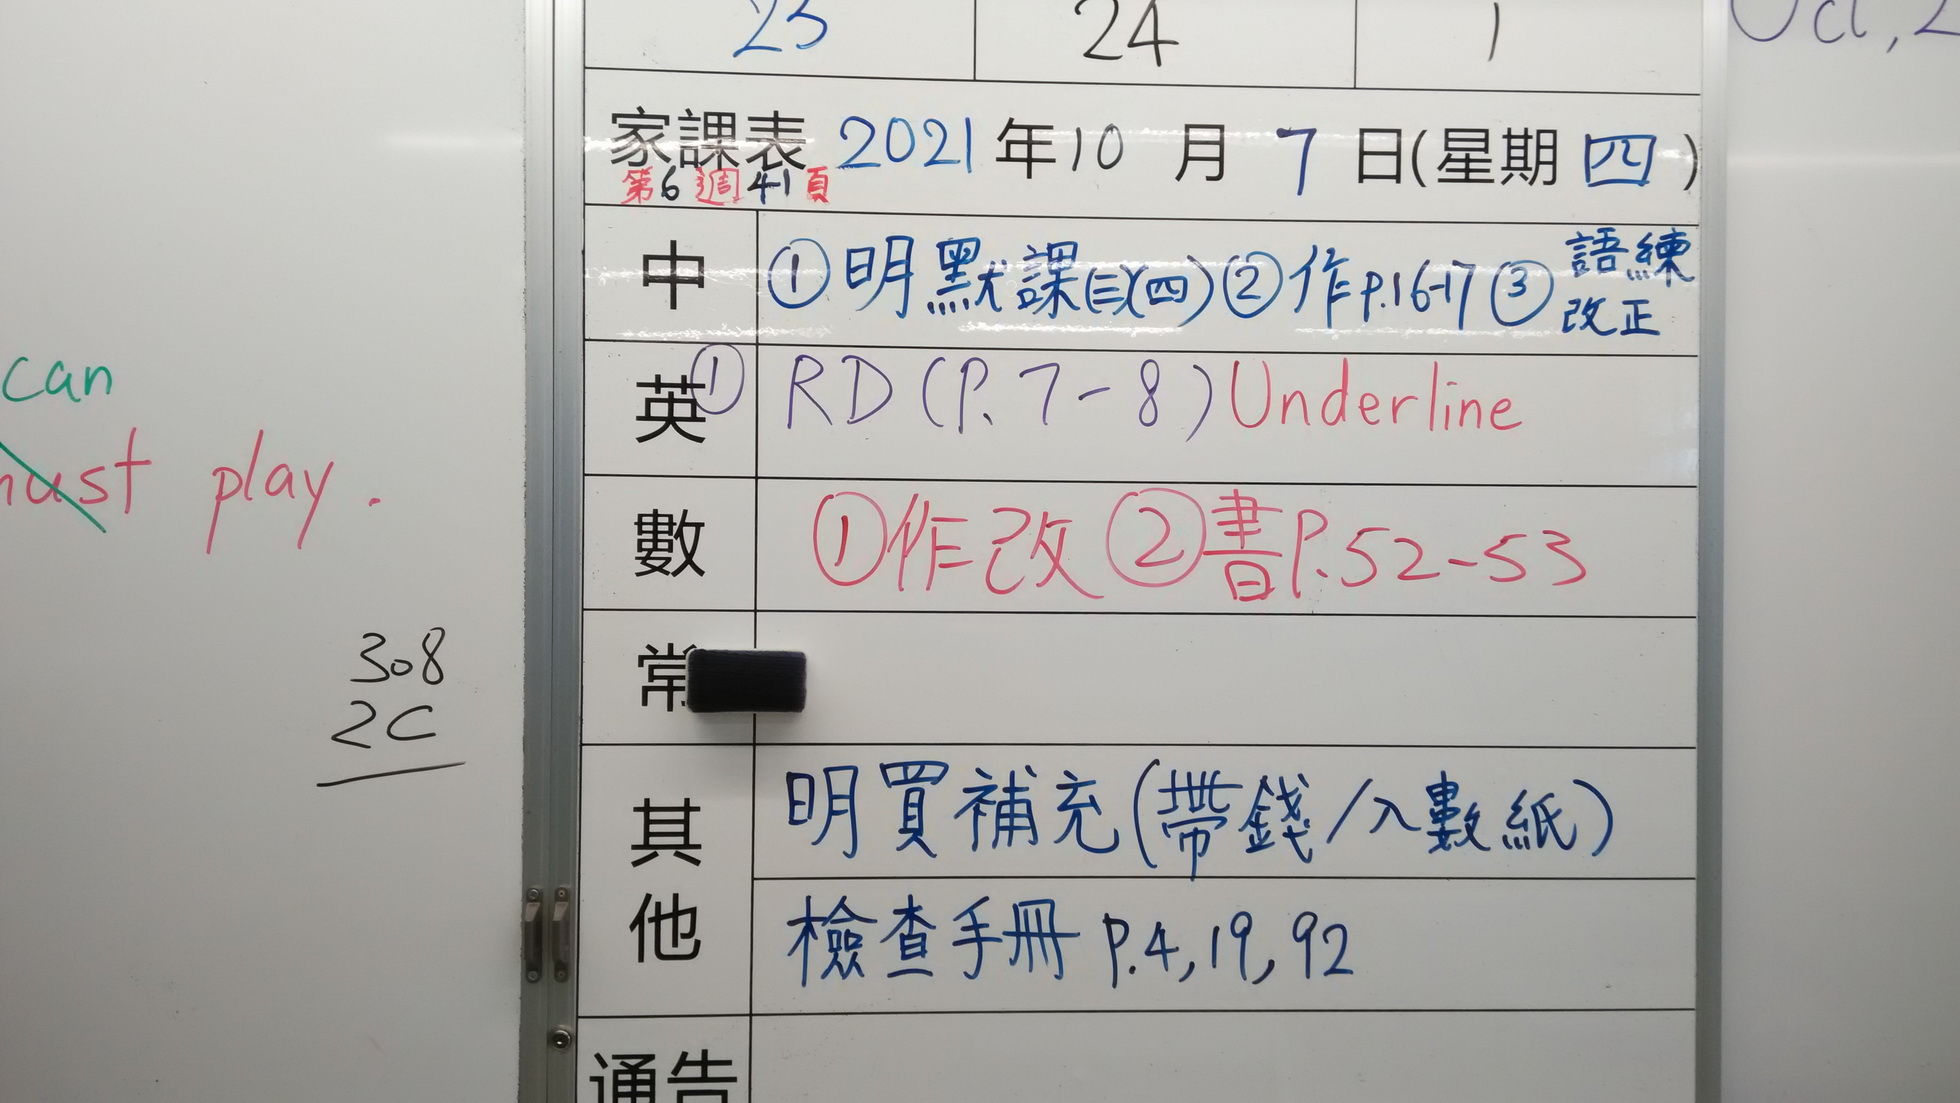 23 24 1
家課表 2021年10月7日(星期四)
第6週41頁
中 ①明默課(三)(四)②作p.16-17③語練改正
英 ① RD(P.7-8)Underline
數 ①作改②書P.52-53
常
其他 明買補充(帶錢/入數紙)
檢查手冊 p.4,19,92
通告
can
must play.
308
2C